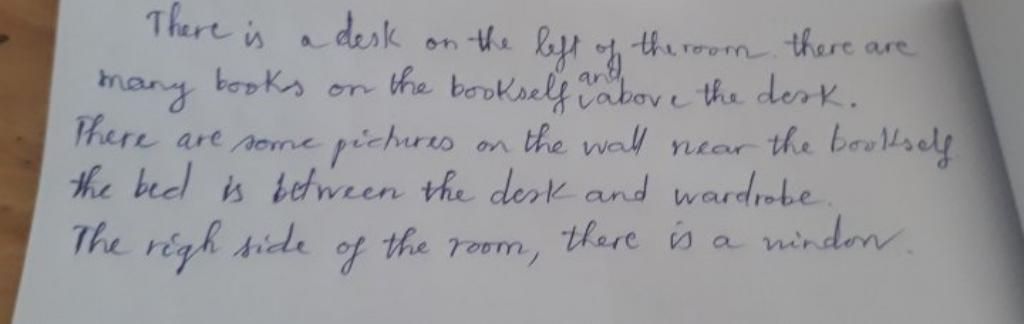 There is a desk on the left of the room. there are
many books on the bookself and above the desk.
There are some pictures on the wall near the bookself
the bed is between the desk and wardrobe.
The righ side of the room, there is a window.